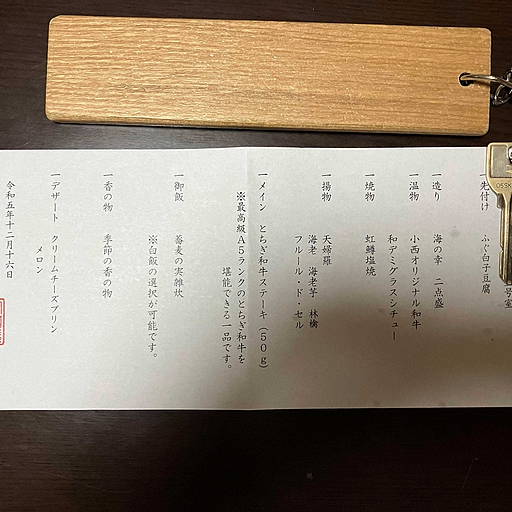 号室
先付け ふぐ白子豆腐
一 造り 海の幸 二点盛
一 温物 小西オリジナル和牛
和デミグラスシチュー
一 焼物 虹鱒塩焼
一 揚物 天婦羅
海老 海老芋 林檎
フルール・ド・セル
一 メイン とちぎ和牛ステーキ(50g)
※最高級A5ランクのとちぎ和牛を
堪能できる一品です。
一 御飯 蕎麦の実雑炊
※白飯の選択が可能です。
一 香の物 季節の香の物
一 デザート クリームチーズプリン
メロン
令和五年十二月十六日